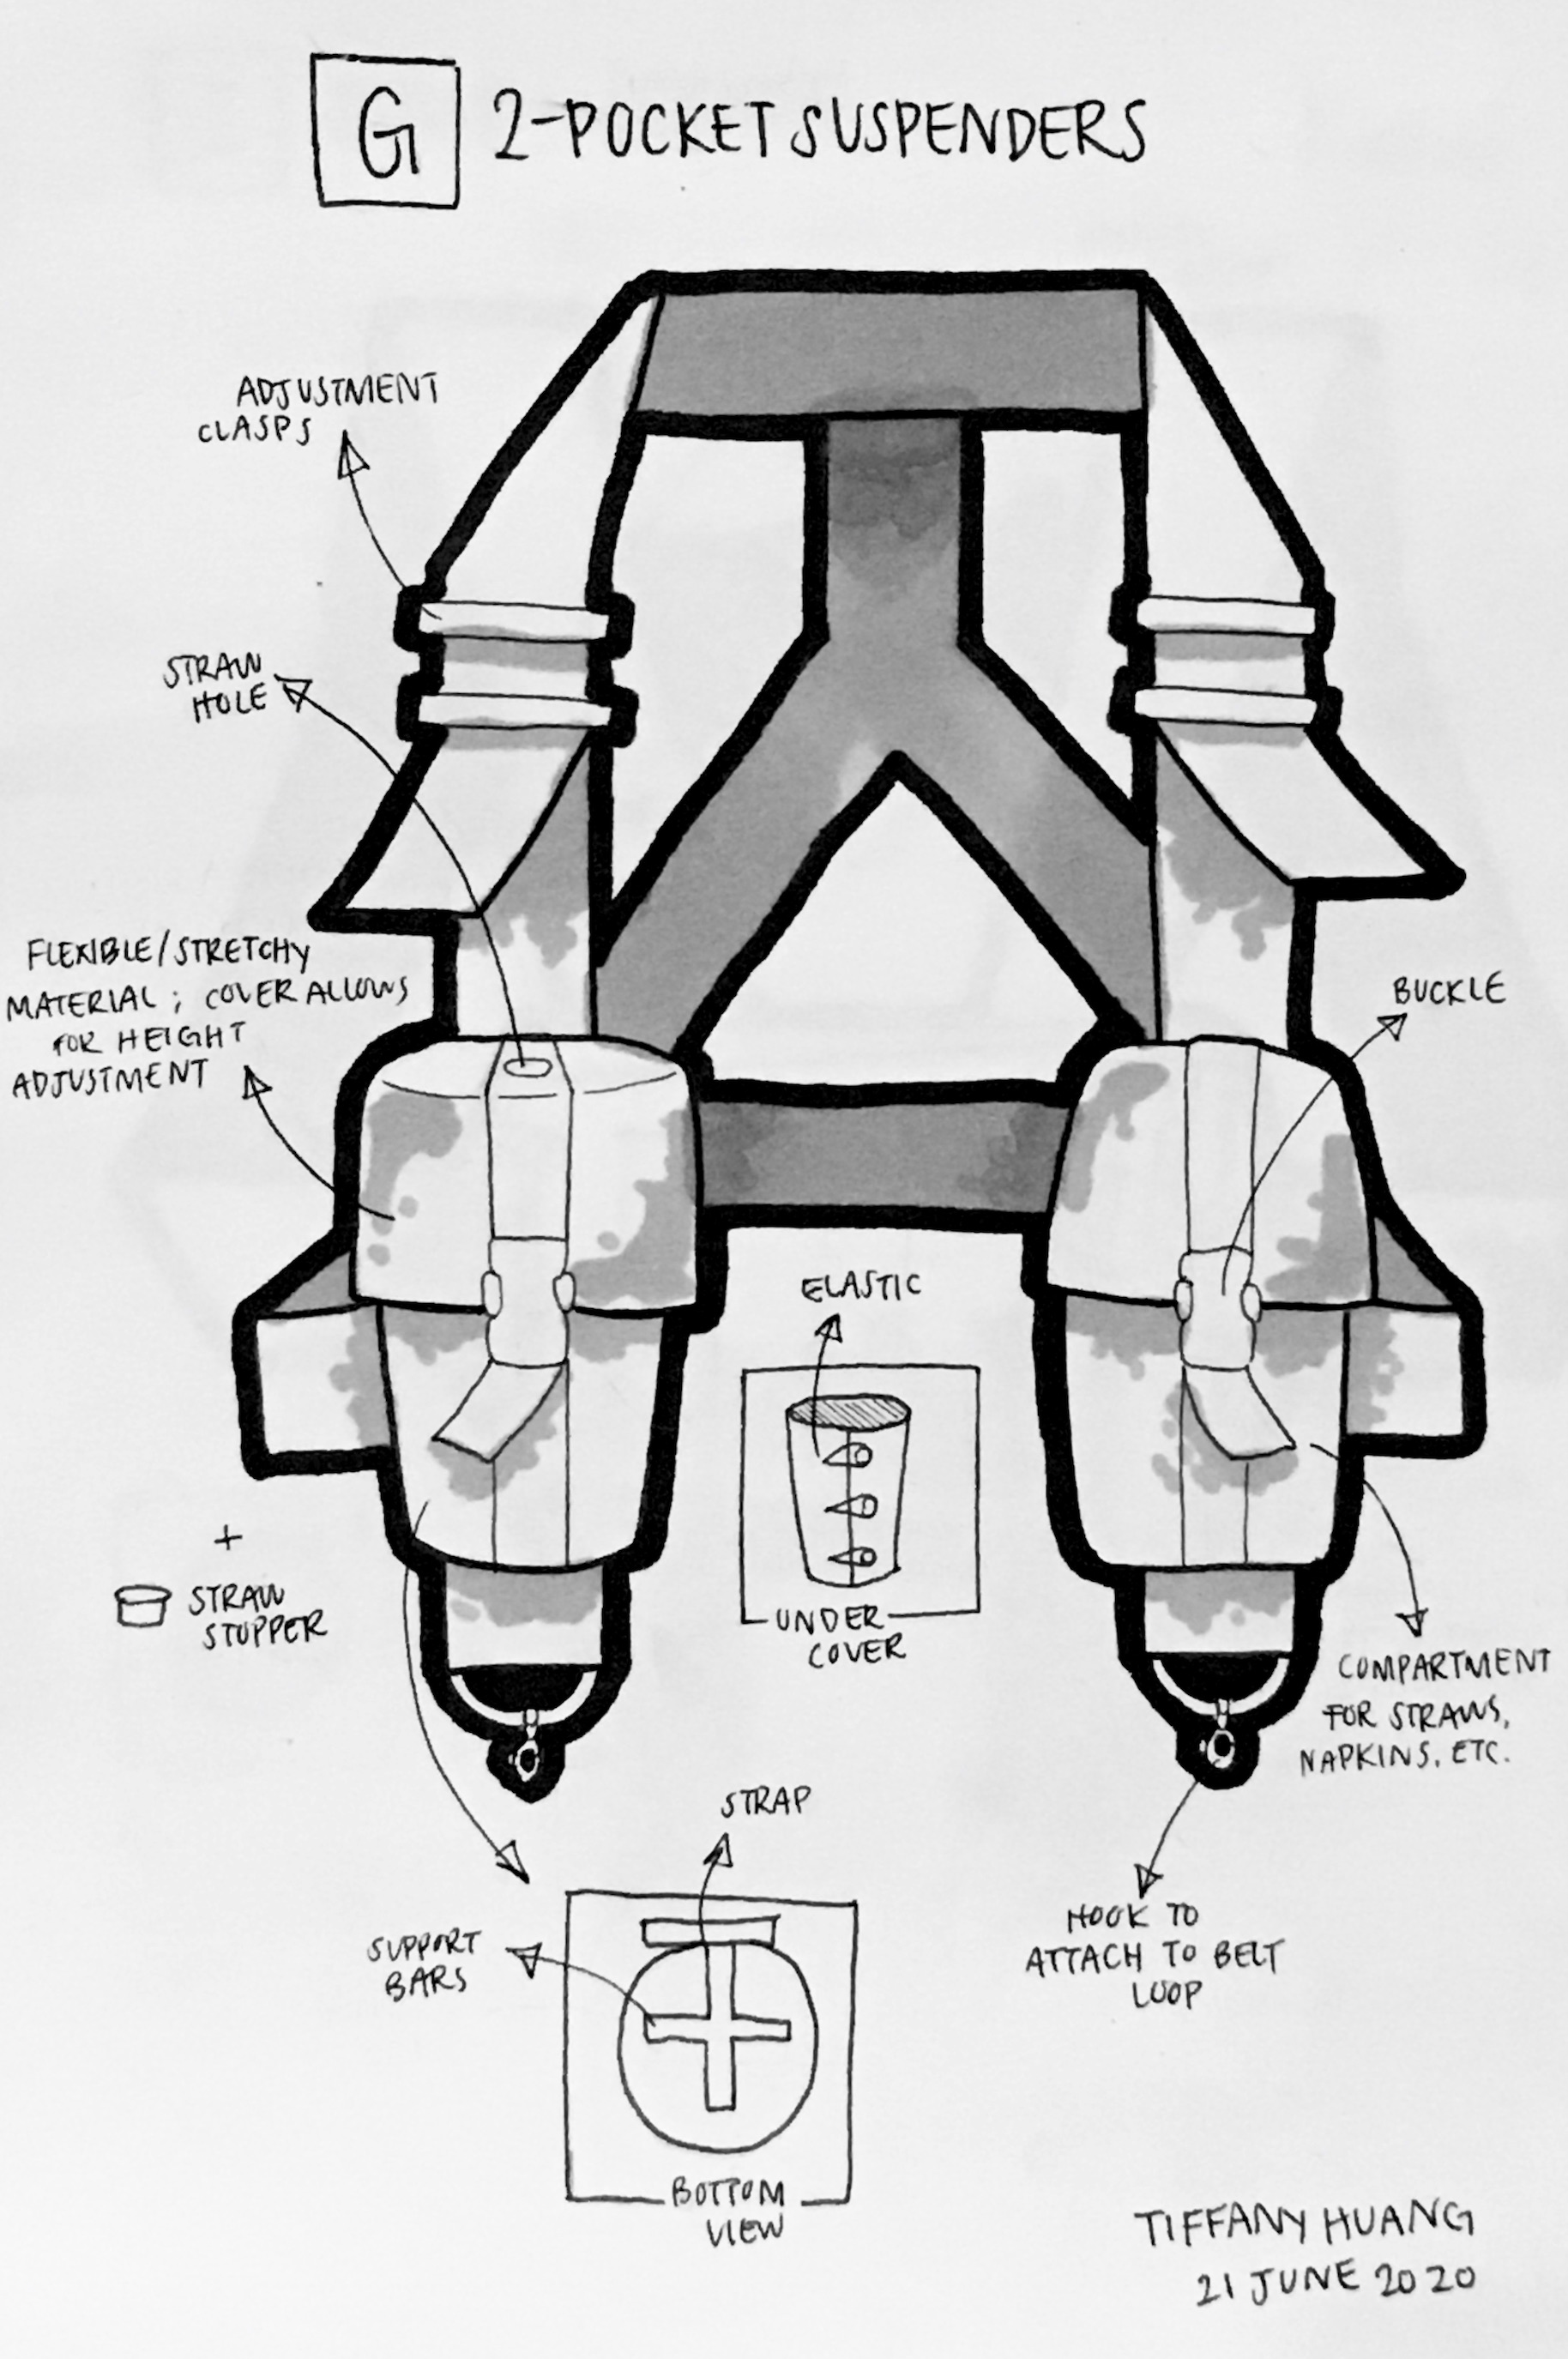 G 2-POCKET SUSPENDERS
ADJUSTMENT
CLASPS
STRAW
HOLE
FLEXIBLE/STRETCHY
MATERIAL; COVER ALLOWS
FOR HEIGHT
ADJUSTMENT
BUCKLE
ELASTIC
UNDER
COVER
+
STRAW
STOPPER
COMPARTMENT
FOR STRAWS,
NAPKINS, ETC.
STRAP
SUPPORT
BARS
HOOK TO
ATTACH TO BELT
LOOP
BOTTOM
VIEW
TIFFANY HUANG
21 JUNE 2020